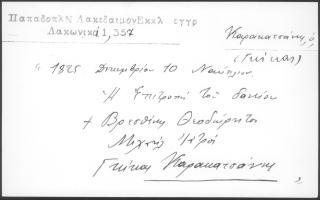 Παπαδοπλ Ν ΛακεδαιμονΕκκλ εγγρ
Λακωνικά 1, 357
Καρακατσάνης, ὁ
(Γκίκας)
" 1825 Δεκεμβρίου 10 Ναύπλιον.
Ἡ Ἐπιτροπή τοῦ δανείου
+ Βρεσθένης Θεοδώρητος
Μιχαήλ Ἰατρός
Γκίκας Καρακατσάνης "